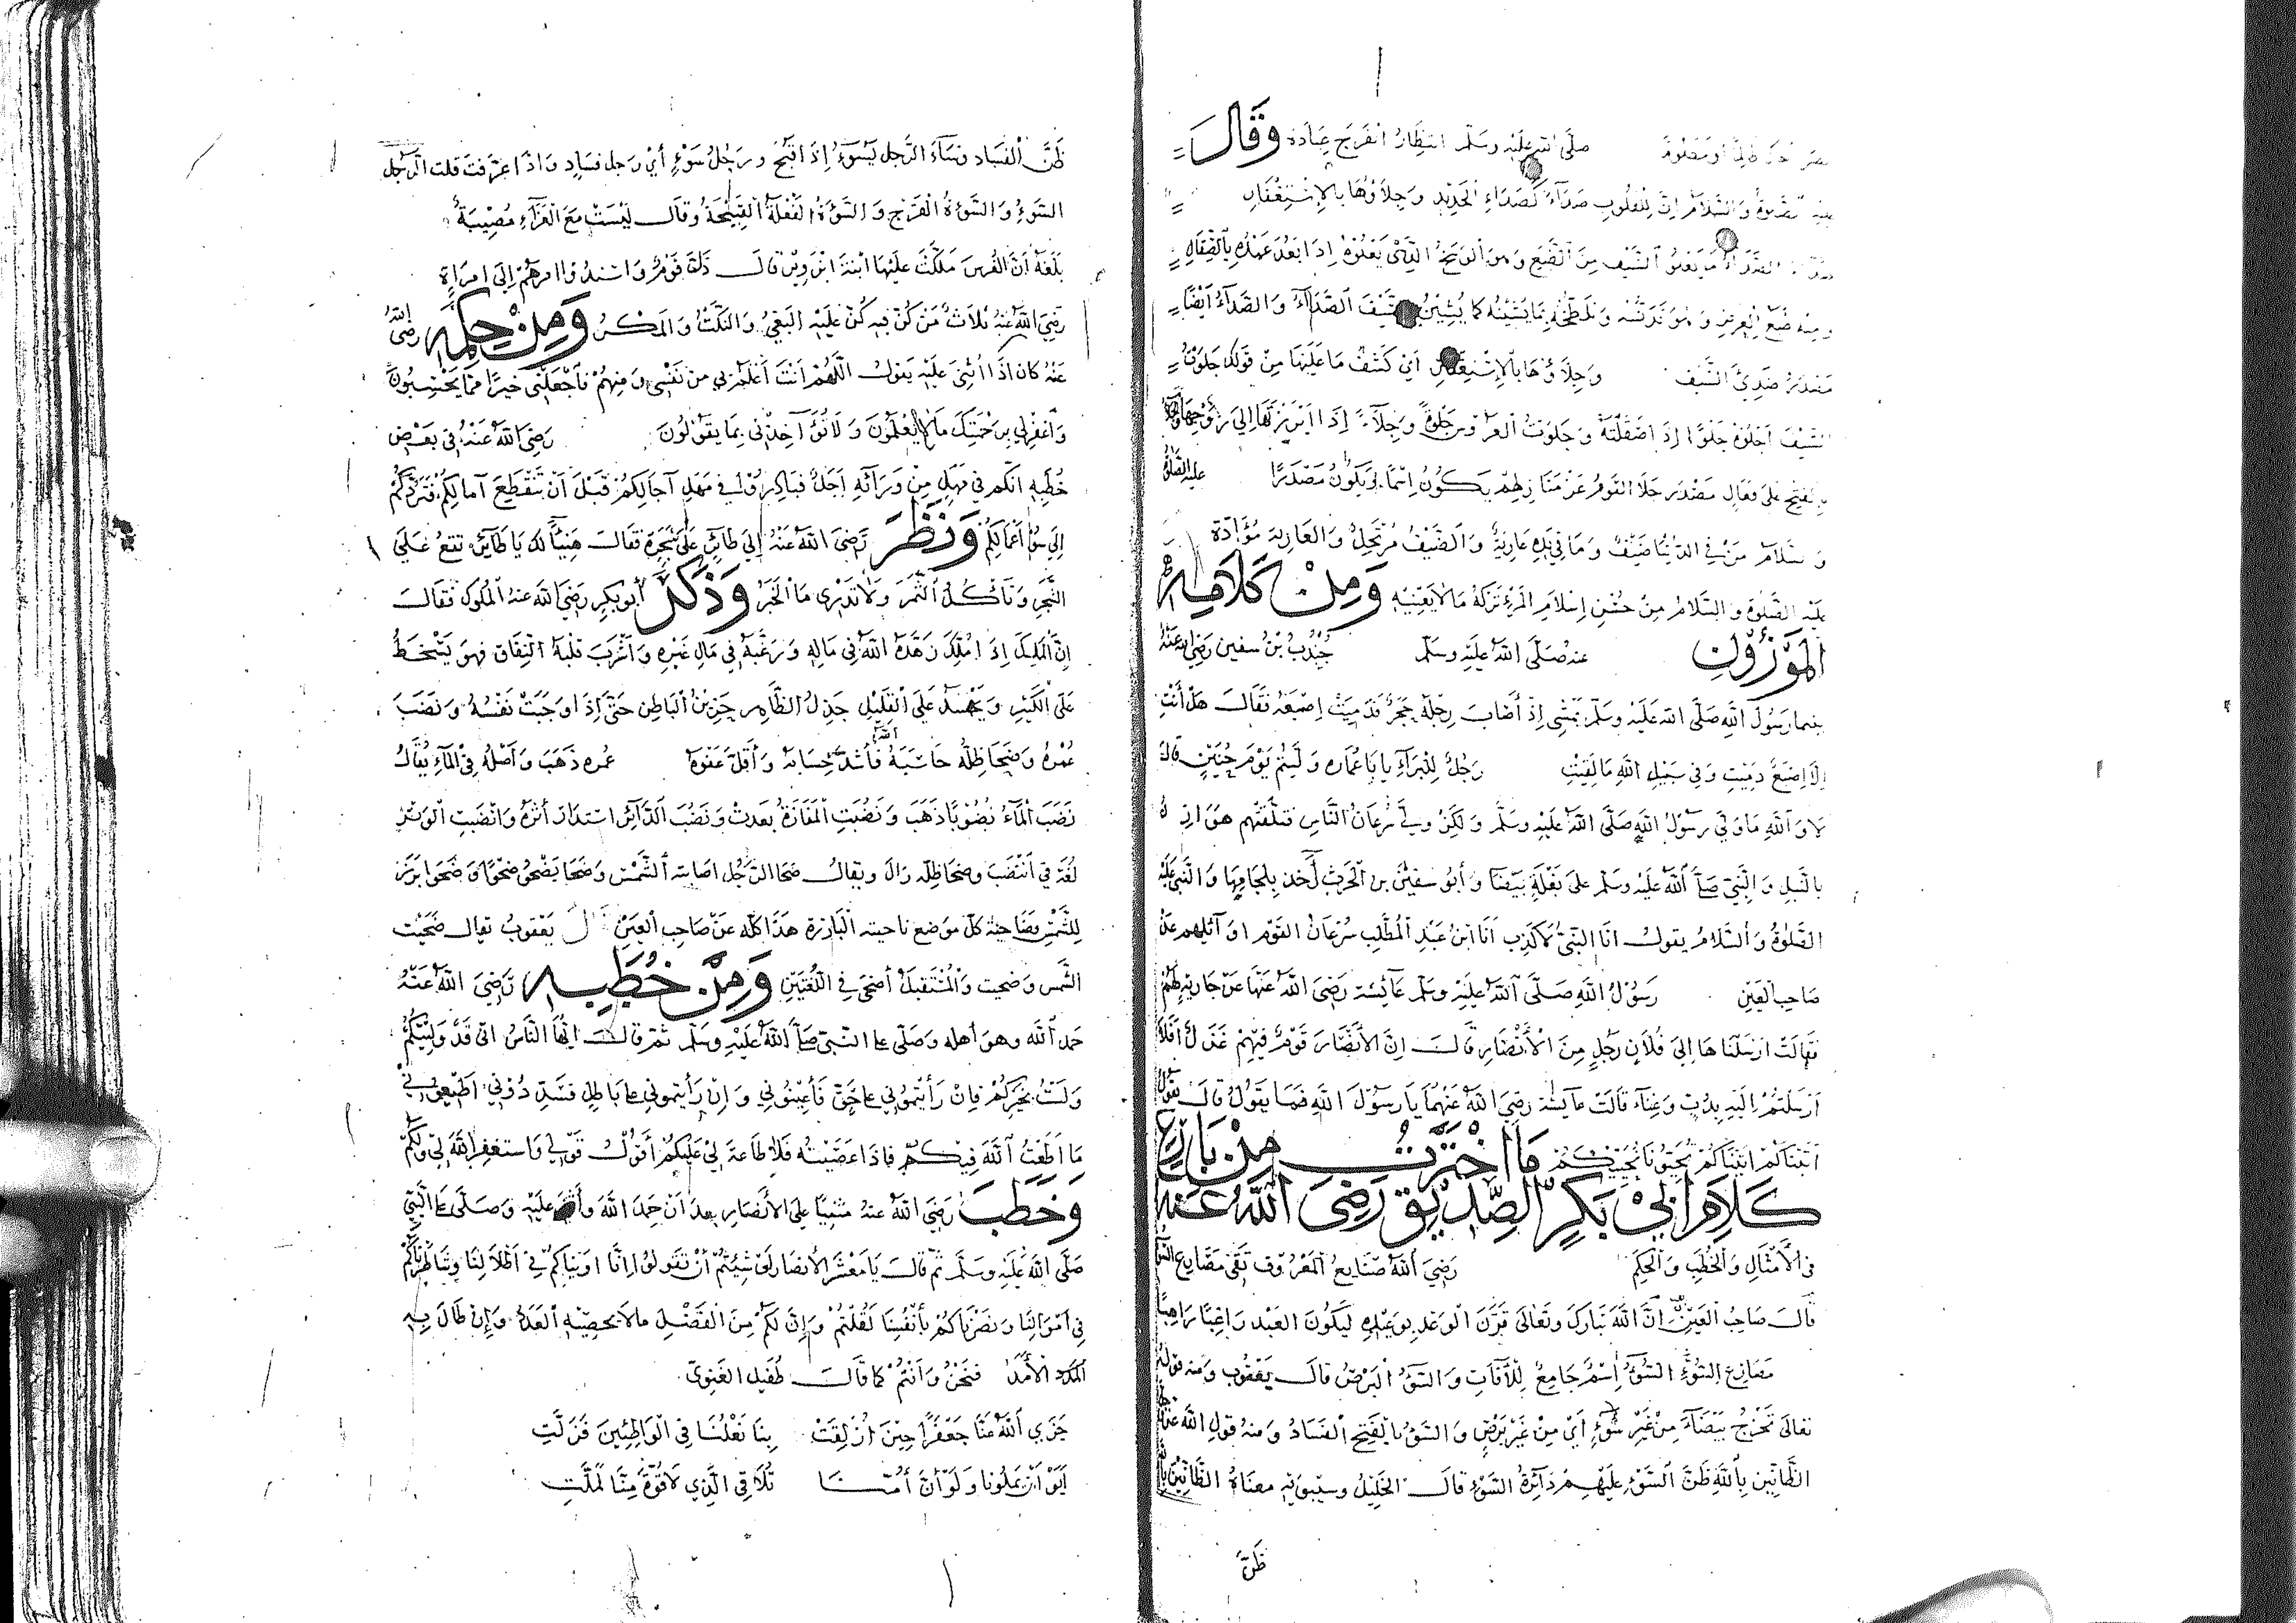 صلى الله عليه وسلم انتظار الفرج عبادة وقال
والسلام ان للقلوب صداء كصداء الحديد وجلاؤها بالاستغفار
السيف من الطبع ومن الوسخ الذي يعلوه اذا بعد عهده بالصقال
بما يشينه كما يشين السيف الصداء والصداء ايضا
مصدر صدئ السيف وجلاؤها بالاستغفار اي كشف ما عليها من قولك جلوت
السيف اجلوه جلوا اذا صقلته وجلوت العروس جلوة وجلاء اذا ابرزتها الى زوجها
بالفتح على فعال مصدر جلا القوم عن منازلهم يكون اسما ويكون مصدرا عليه الصلوة
والسلام من في الدنيا ضيف وما في يده عارية والضيف مرتحل والعارية مؤداة
عليه الصلوة والسلام من حسن اسلام المرء تركه ما لا يعنيه ومن كلامه
الموزون عنه صلى الله عليه وسلم جندب بن سفين رضي الله عنه
بينما رسول الله صلى الله عليه وسلم يمشي إذ أصاب رجله حجر فدميت إصبعه فقال هل أنت
إلا إصبع دميت وفي سبيل الله ما لقيت رجل للبراء يا با عماره وليتم يوم حنين قال
لا والله ما ولى رسول الله صلى الله عليه وسلم ولكن ولى سرعان الناس فتلقتهم هوازن
بالنبل والنبي صلى الله عليه وسلم على بغلة بيضا وأبو سفين بن الحرث آخذ بلجامها والنبي عليه
الصلوة والسلام يقول انا النبي لا كذب انا ابن عبد المطلب سرعان القوم اوائلهم عن
صاحب العين رسول الله صلى الله عليه وسلم عائشة رضي الله عنها عن جارية لهم
فقالت ارسلناها الى فلان رجل من الأنصار قال ان الأنصار قوم فيهم غزل أفلا
ارسلتم اليه بدف وغناء قالت عايشة رضي الله عنها يا رسول الله فما يقول قال يقول
اتيناكم اتيناكم فحيونا نحييكم ما اخترت من بارع
كلام أبي بكر الصديق رضي الله عنه
في الأمثال والخطب والحكم رضي الله صنايع المعروف تقي مصارع السوء
قال صاحب العين ان الله تبارك وتعالى قرن الوعد بوعيده ليكون العبد راغبا راهبا
مصارع السوء السوء اسم جامع للآفات والسوء البرص قال يعقوب ومنه قوله
تعالى تخرج بيضاء من غير سوء أي من غير برص والسوء بالفتح الفساد ومنه قول الله
الظانين بالله ظن السوء عليهم دائرة السوء قال الخليل وسيبويه معناه الظانين بالله
ظن
ظن الفساد وساء الرجل يسوء إذا قبح ورجل سوء أي رجل فساد واذا عرفت قلت الرجل
السوء والسوءة الفرج والسوءة الفعلة القبيحة وقال ليست مع العزاء مصيبة
بلغه أن الفرس ملكت عليها ابنة ابرويز قال ذل قوم واسندوا امرهم إلى امراة
رضي الله عنه ثلاث من كن فيه كن عليه البغي والنكث والمكر ومن حكمه رضي الله
عنه كان اذا اثني عليه يقول اللهم انت أعلم بي من نفسي ومنهم فاجعلني خيرا مما يحتسبون
واغفر لي برحمتك ما لا يعلمون ولا تؤاخذني بما يقولون رضي الله عنه في بعض
خطبه انكم في مهل من ورائه اجل فبادروا في مهل آجالكم قبل أن تنقطع آمالكم فتردكم
إلى سوء اعمالكم ونظر رضي الله عنه إلى طائر على شجرة فقال هنيئا لك يا طائر تقع على
الشجر وتأكل الثمر ولا تدري ما الخبر وذكر أبو بكر رضي الله عنه الملوك فقال
إن الملك اذا ملك زهده الله في ماله ورغبه في مال غيره واشرب قلبه النفاق فهو يتسخط
على الكثير ويحسد على القليل جذل الظاهر حزين الباطن حتى إذا وجبت نفسه ونضب
عمره وضحا ظله حاسبه الله فأشد حسابه وأقل عفوه عمره ذهب وأصله في الماء يقال
نضب الماء نضوبا ذهب ونضبت المفازة بعدت ونضب الدائر استدار أثره وانضبت الوتر
لغة في أنبضت وضحا ظله زال ويقال ضحا الرجل اصابته الشمس وضحا يضحو ضحوا وضحوا برز
للشمس وضاحية كل موضع ناحيته البارزة هذا كله عن صاحب العين قال يعقوب يقال ضحيت
الشمس وضحيت والمستقبل أضحى في اللغتين ومن خطبه رضي الله عنه
حمد الله وهو أهله وصلى على النبي صلى الله عليه وسلم ثم قال أيها الناس اني قد وليتكم
ولست بخيركم فإن رأيتموني على حق فأعينوني وإن رأيتموني على باطل فسددوني اطيعوني
ما اطعت الله فيكم فاذا عصيته فلا طاعة لي عليكم أقول قولي واستغفر الله لي ولكم
وخطب رضي الله عنه مثنيا على الأنصار بعد أن حمد الله وأثنى عليه وصلى على النبي
صلى الله عليه وسلم ثم قال يا معشر الأنصار لو شئتم أن تقولوا انا اويناكم في اظلالنا وشاطرناكم
في أموالنا ونصرناكم بأنفسنا لقلتم وإن لكم من الفضل ما لا يحصيه العدد وإن طال به
الأمد فنحن وأنتم كما قال طفيل الغنوي
جزى الله عنا جعفرا حين ازلقت بنا نعلنا في الواطئين فزلت
أبوا أن يملونا ولو أن أمنا تلاقي الذي لاقوه منا لملت